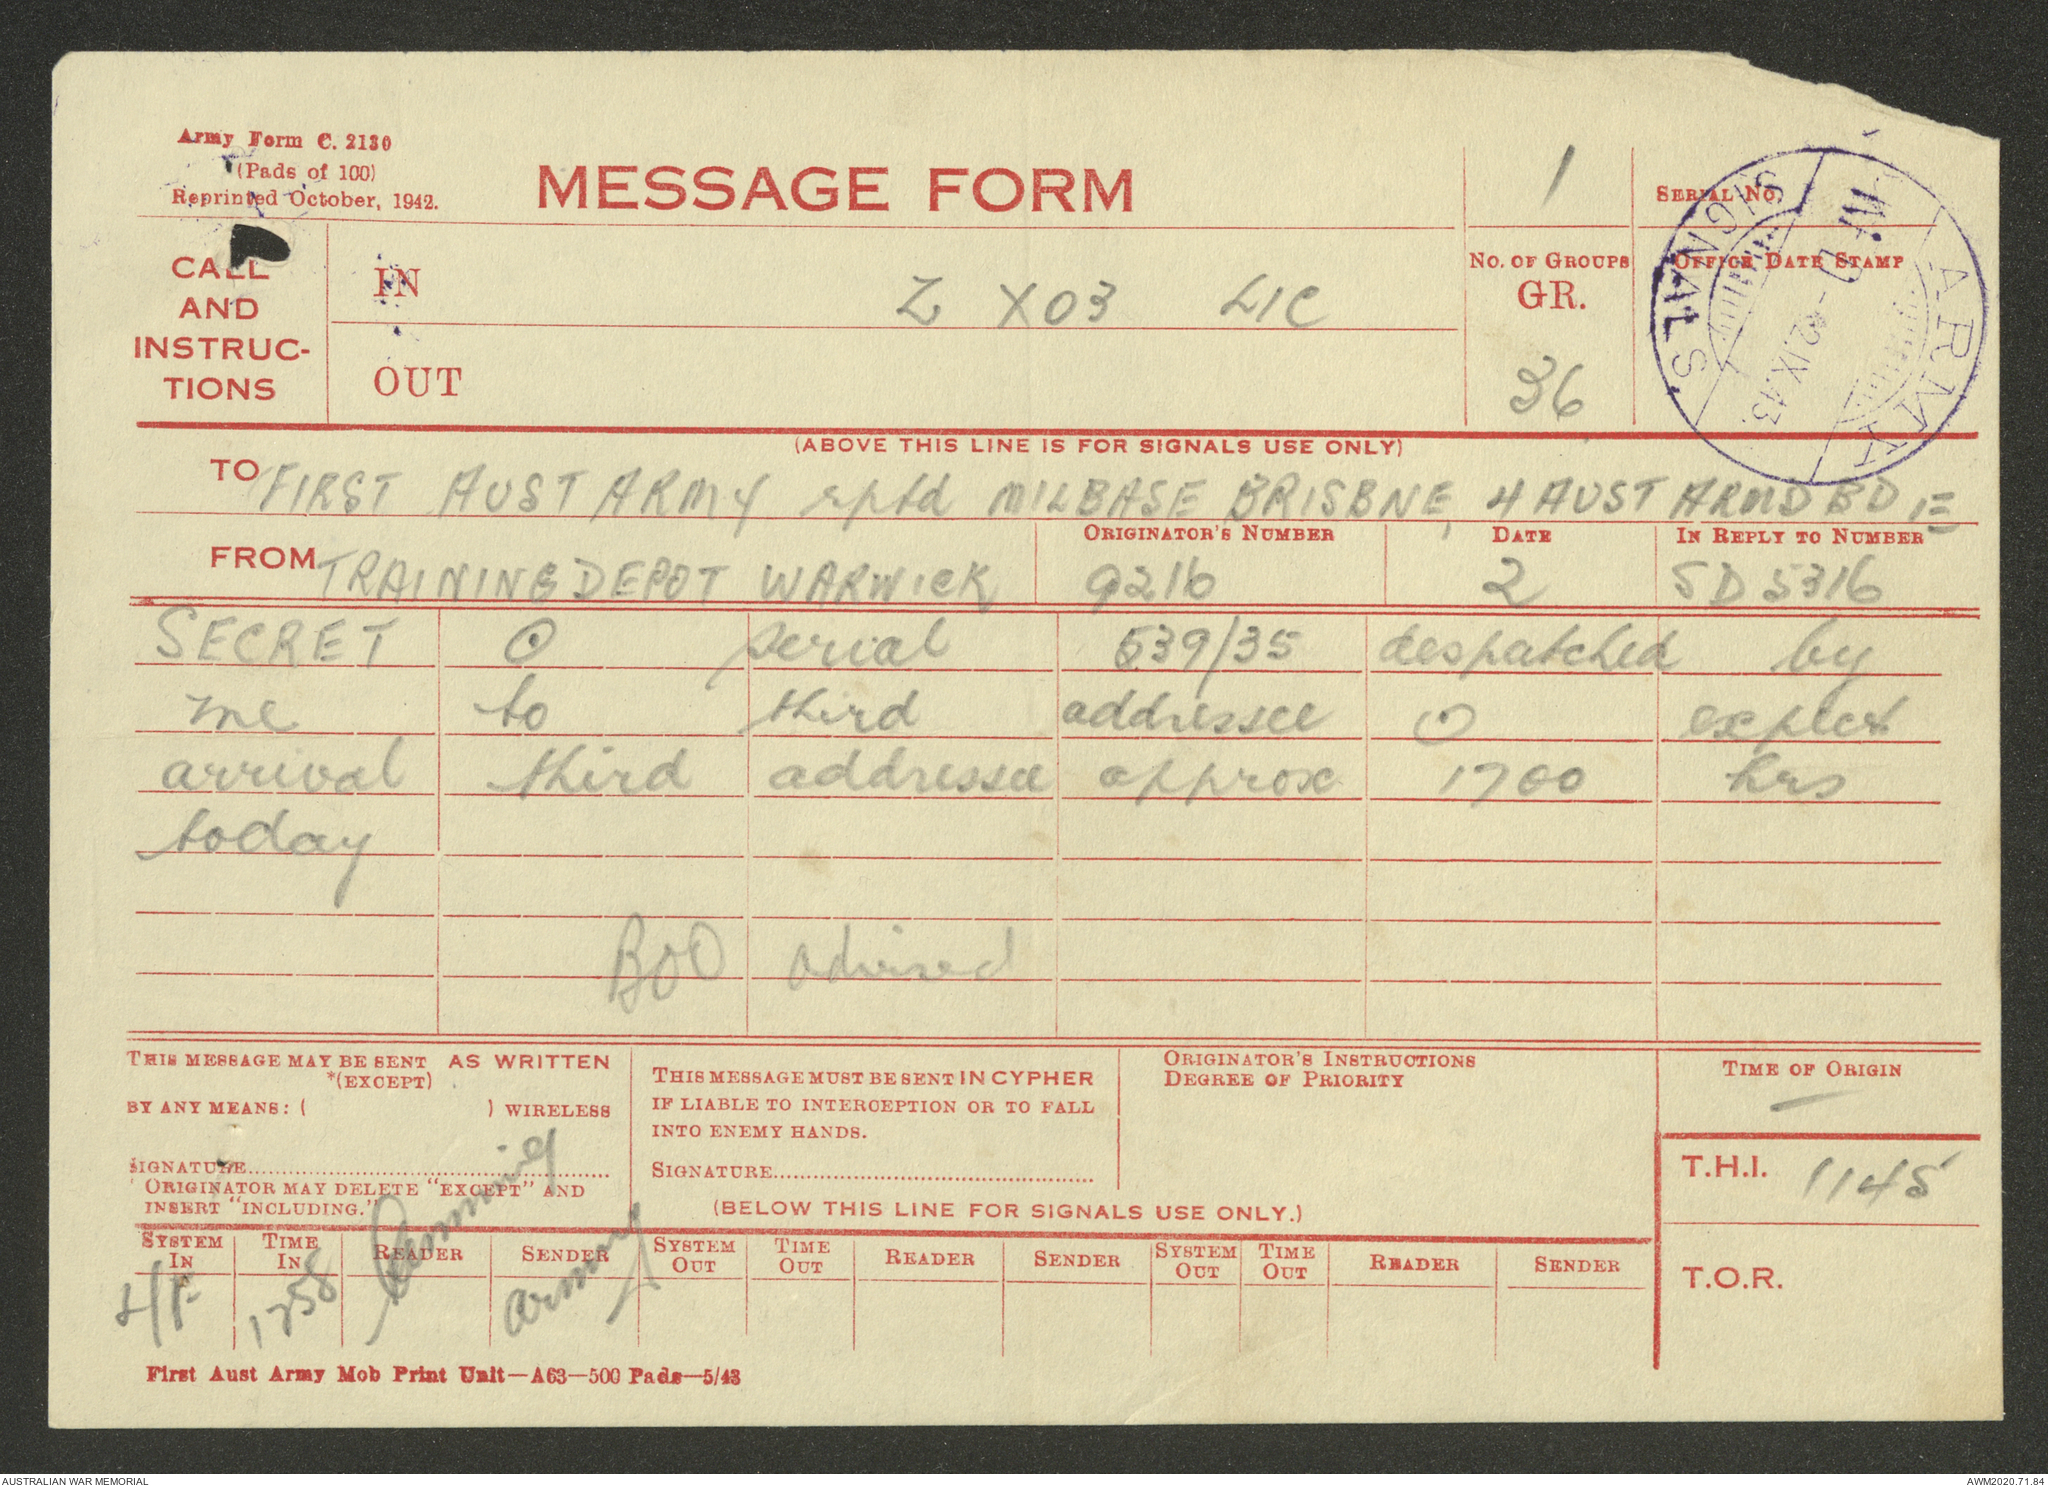 Army Form C. 2130
(Pads of 100)
Reprinted October, 1942.
MESSAGE FORM
1
SERIAL NO.
CALL
AND
INSTRUC-
TIONS
IN
Z X03 LIC
OUT
NO. OF GROUPS
GR.
36
OFFICE DATE STAMP
ARMY SIGNALS
2.IX.43
(ABOVE THIS LINE IS FOR SIGNALS USE ONLY)
TO FIRST AUST ARMY rptd MILBASE BRISBNE, 4 AUST ARMD BD IE
FROM TRAINING DEPOT WARWICK
ORIGINATOR'S NUMBER
9216
DATE
2
IN REPLY TO NUMBER
SD 5316
SECRET O serial 539/35 despatched by
me to third addressee O expect
arrival third addressee approx 1700 hrs
today
BOO advised
THIS MESSAGE MAY BE SENT AS WRITTEN
*(EXCEPT)
BY ANY MEANS: ( ) WIRELESS
SIGNATURE
ORIGINATOR MAY DELETE "EXCEPT" AND
INSERT "INCLUDING."
THIS MESSAGE MUST BE SENT IN CYPHER
IF LIABLE TO INTERCEPTION OR TO FALL
INTO ENEMY HANDS.
SIGNATURE
(BELOW THIS LINE FOR SIGNALS USE ONLY.)
ORIGINATOR'S INSTRUCTIONS
DEGREE OF PRIORITY
TIME OF ORIGIN
T.H.I. 1145
T.O.R.
SYSTEM IN TIME IN READER SENDER SYSTEM OUT TIME OUT READER SENDER SYSTEM OUT TIME OUT READER SENDER
1258
First Aust Army Mob Print Unit—A63—500 Pads—5/43
AUSTRALIAN WAR MEMORIAL
AWM2020.71.84